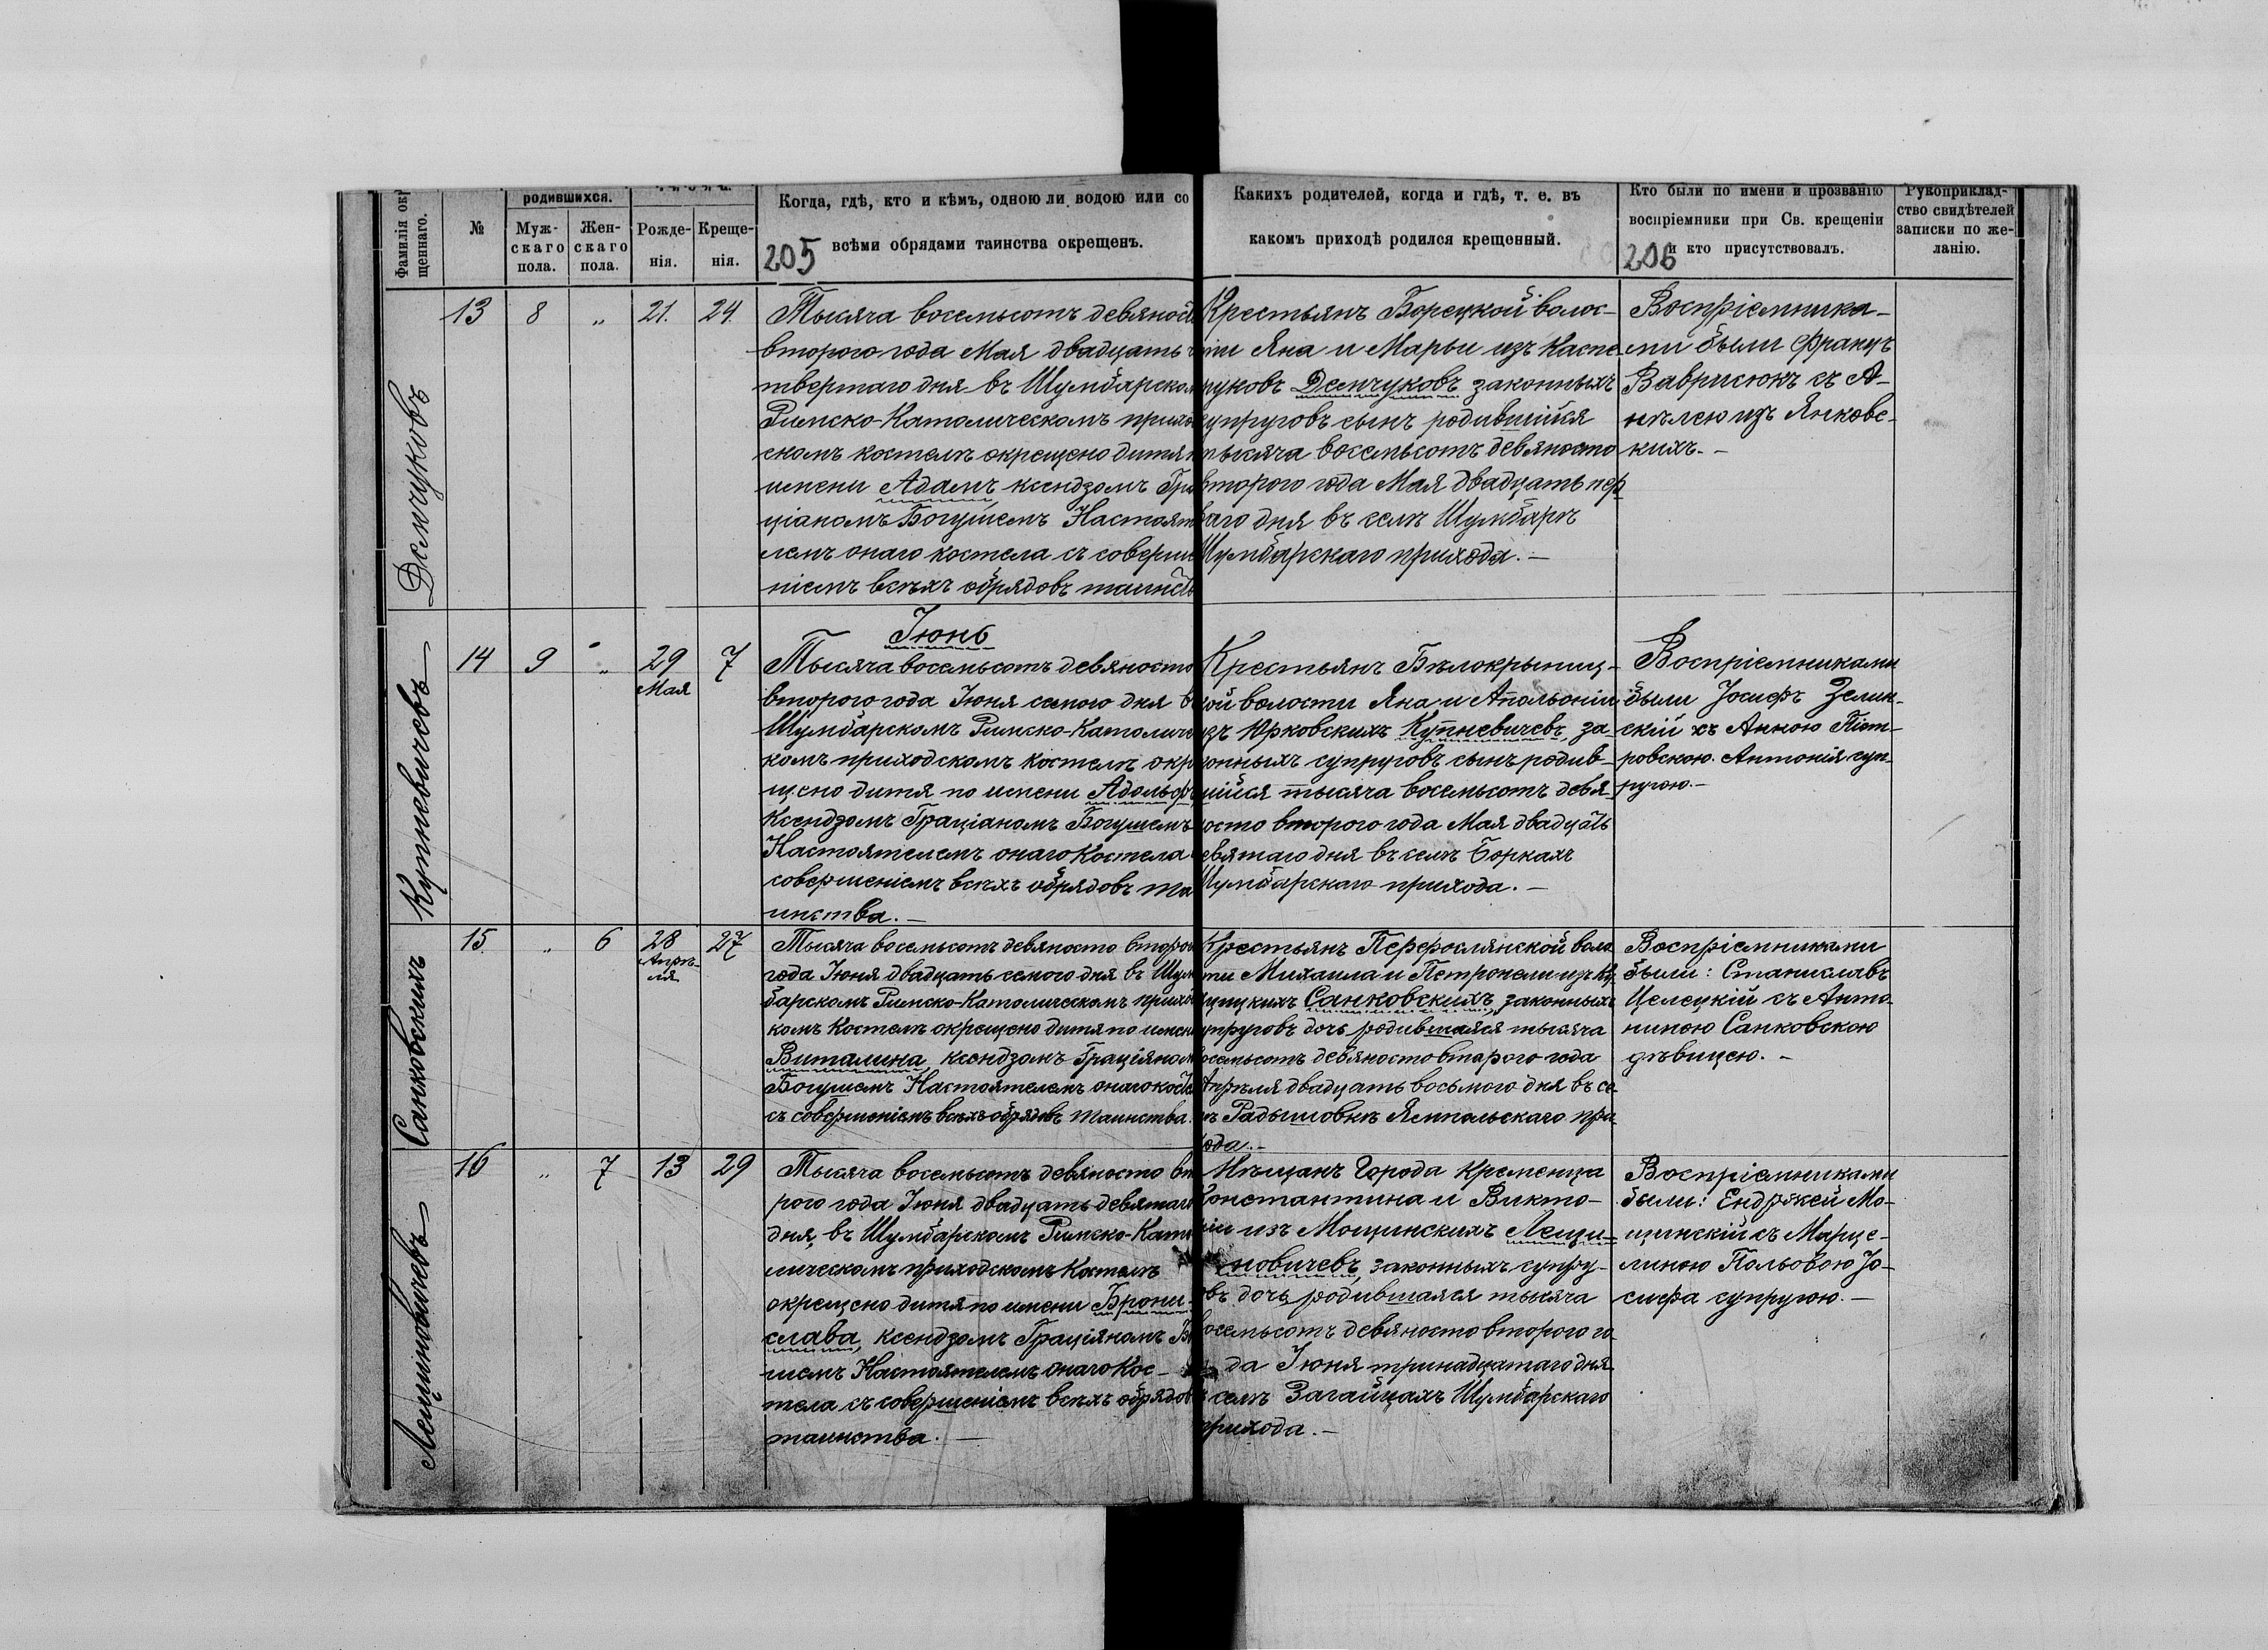 Фамилія окр
щеннаго.
№
родившихся.
Муж-
скаго
пола.
Жен-
скаго
пола.
Рожде-
нія.
Креще-
нія.
Когда, гдѣ, кто и кѣмъ, одною ли водою или со
всѣми обрядами таинства окрещенъ.
205
Каких​ъ родителей, когда и гдѣ, т. е. въ
какомъ приходѣ родился крещенный.
Кто были по имени и прозванію
воспріемники при Св. крещеніи
и кто присутствовалъ.
206
Рукоприклад-
ство свидѣтелей
записки по же-
ланію.
Демчуковъ
13 8 „ 21. 24.
Тысяча восемьсотъ девяност
второго года Мая двадцать ч
твертаго дня въ Шумбарском
Римско-Католическомъ прихо
скомъ костелѣ окрещено дитя п
имени Адамъ ксендзомъ Гра
ціаномъ Богушемъ Настоят
лемъ онаго костела съ соверше
ніемъ всѣхъ обрядовъ таинств
Крестьянъ Борецкой волос-
ти Яна и Марьи изъ Каспе
руковъ Демчуковъ законныхъ
супруговъ сынъ родившійся
тысяча восемьсотъ девяносто
второго года Мая двадцать пер
ваго дня въ селѣ Шумбарѣ
Шумбарскаго прихода. —
Воспріемника-
ми были Францъ
Ваврисюкъ съ А-
нѣлею изъ Янковс-
кихъ. -
Купневичевъ
Іюнь
14 9 „ 29 7
Мая
Тысяча восемьсотъ девяносто
второго года Іюня семого дня в
Шумбарскомъ Римско-Католиче
комъ приходскомъ костелѣ окр
щено дитя по имени Адольфъ
Ксендзомъ Граціаномъ Богушемъ
Настоятелемъ онаго Костела
совершеніемъ всѣхъ обрядовъ та
инства. —
Крестьянъ Бѣлокрыниц-
кой волости Яна и Апольоніи
изъ Юрковскихъ Купневичевъ, за
конныхъ супруговъ сынъ родив-
шійся тысяча восемьсотъ девя-
носто второго года Мая двадцать
девятаго дня въ селѣ Боркахъ
Шумбарскаго прихода. —
Воспріемниками
были Іосифъ Зелин-
скій съ Анною Піот-
ровскою. Антонія суп-
ругою. —
Санковскихъ
15. „ 6 28 27
Апрѣ-
ля
Тысяча восемьсотъ девяносто второг
года Іюня двадцать семого дня въ Шум
барскомъ Римско-Католическомъ приход
комъ Костелѣ окрещено дитя по имени
Виталина ксендзомъ Граціяном
Богушемъ Настоятелемъ онаго косте
съ совершеніемъ всѣхъ обрядовъ таинства.
Крестьянъ Перерослянской воло
ти Михаила и Петронели изъ
Санковскихъ, законныхъ
супруговъ дочь родившаяся тысяча
восемьсотъ девяносто второго года
Апрѣля двадцать восьмого дня въ се
лѣ Радышовкѣ Ямпольскаго при
хода. -
Воспріемниками
были: Станиславъ
Целецкій съ Анто-
ниною Санковскою
дѣвицею. -
Лещиновичевъ
16 „ 7 13 29
Тысяча восемьсотъ девяносто вт
рого года Іюня двадцать девятаго
дня, въ Шумбарскомъ Римско-Като
лическомъ приходскомъ Костелѣ
окрещено дитя по имени Брони-
слава, ксендзомъ Граціяномъ Бо
шемъ Настоятелемъ онаго Кос-
тела съ совершеніемъ всѣхъ обрядов
таинства. —
Мѣщанъ Города Кременца
Константина и Викто-
ріи изъ Мощинскихъ Лещи-
новичевъ, законныхъ супру-
овъ дочь родившаяся тысяча
восемьсотъ девяносто второго го
да Іюня тринадцатаго дня
селѣ Загайцахъ Шумбарскаго
прихода. -
Воспріемниками
были: Ендржей Мо-
щинскій съ Марце-
линою Польовою Іо-
сифа супругою. —